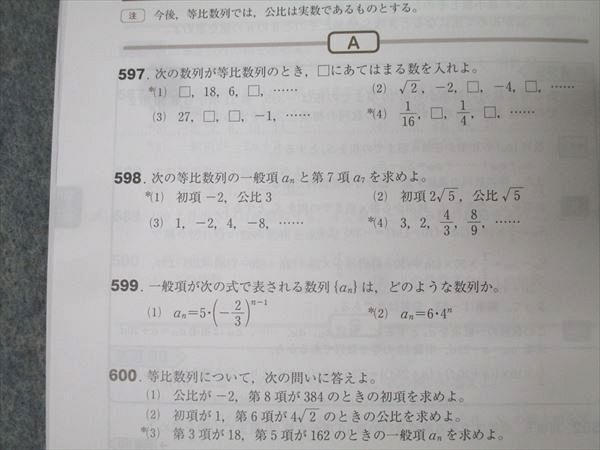 注 今後，等比数列では，公比は実数であるものとする。
A
597. 次の数列が等比数列のとき，□にあてはまる数を入れよ。
*(1) □, 18, 6, □, …… (2) √2, −2, □, −4, □, ……
(3) 27, □, □, −1, …… *(4) 1/16, □, 1/4, □, ……
598. 次の等比数列の一般項 aₙ と第 7 項 a₇ を求めよ。
*(1) 初項 −2，公比 3 (2) 初項 2√5，公比 √5
(3) 1, −2, 4, −8, …… *(4) 3, 2, 4/3, 8/9, ……
599. 一般項が次の式で表される数列 {aₙ} は，どのような数列か。
(1) aₙ=5・(−2/3)ⁿ⁻¹ *(2) aₙ=6・4ⁿ
600. 等比数列について，次の問いに答えよ。
(1) 公比が −2，第 8 項が 384 のときの初項を求めよ。
(2) 初項が 1，第 6 項が 4√2 のときの公比を求めよ。
*(3) 第 3 項が 18，第 5 項が 162 のときの一般項 aₙ を求めよ。